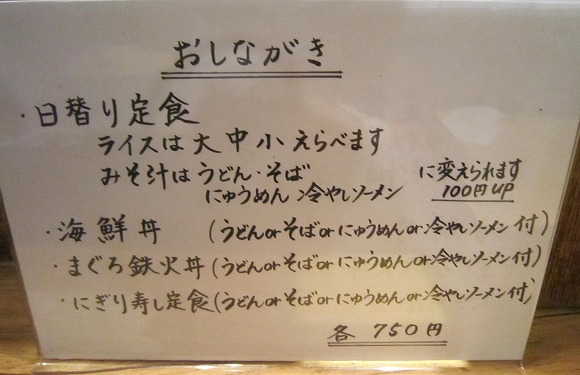 おしながき
・日替り定食
ライスは大中小えらべます
みそ汁はうどん・そば
にゅうめん 冷やしソーメン に変えられます
100円UP
・海鮮丼 (うどんorそばorにゅうめんor冷やしソーメン付)
・まぐろ鉄火丼(うどんorそばorにゅうめんor冷やしソーメン付)
・にぎり寿し定食(うどんorそばorにゅうめんor冷やしソーメン付)
各 750円